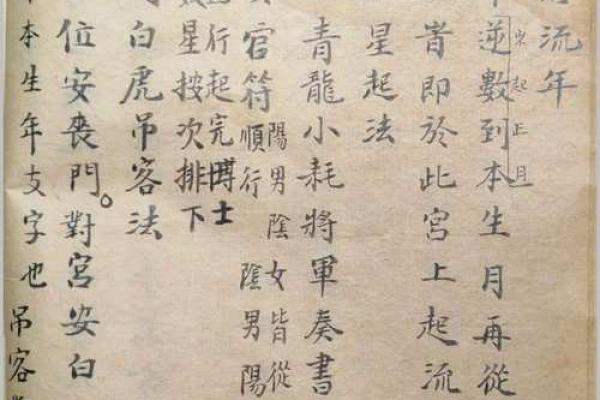 流年
逆數到本生月再從
宋起正月
者即於此宮上起流
星起法
青龍小耗將軍奏書
官符順行 陰男陽
陽男陰女皆從
行起完博士
星按次排下
白虎吊客法
位安喪門。對宮安白
本生年支字也 吊客